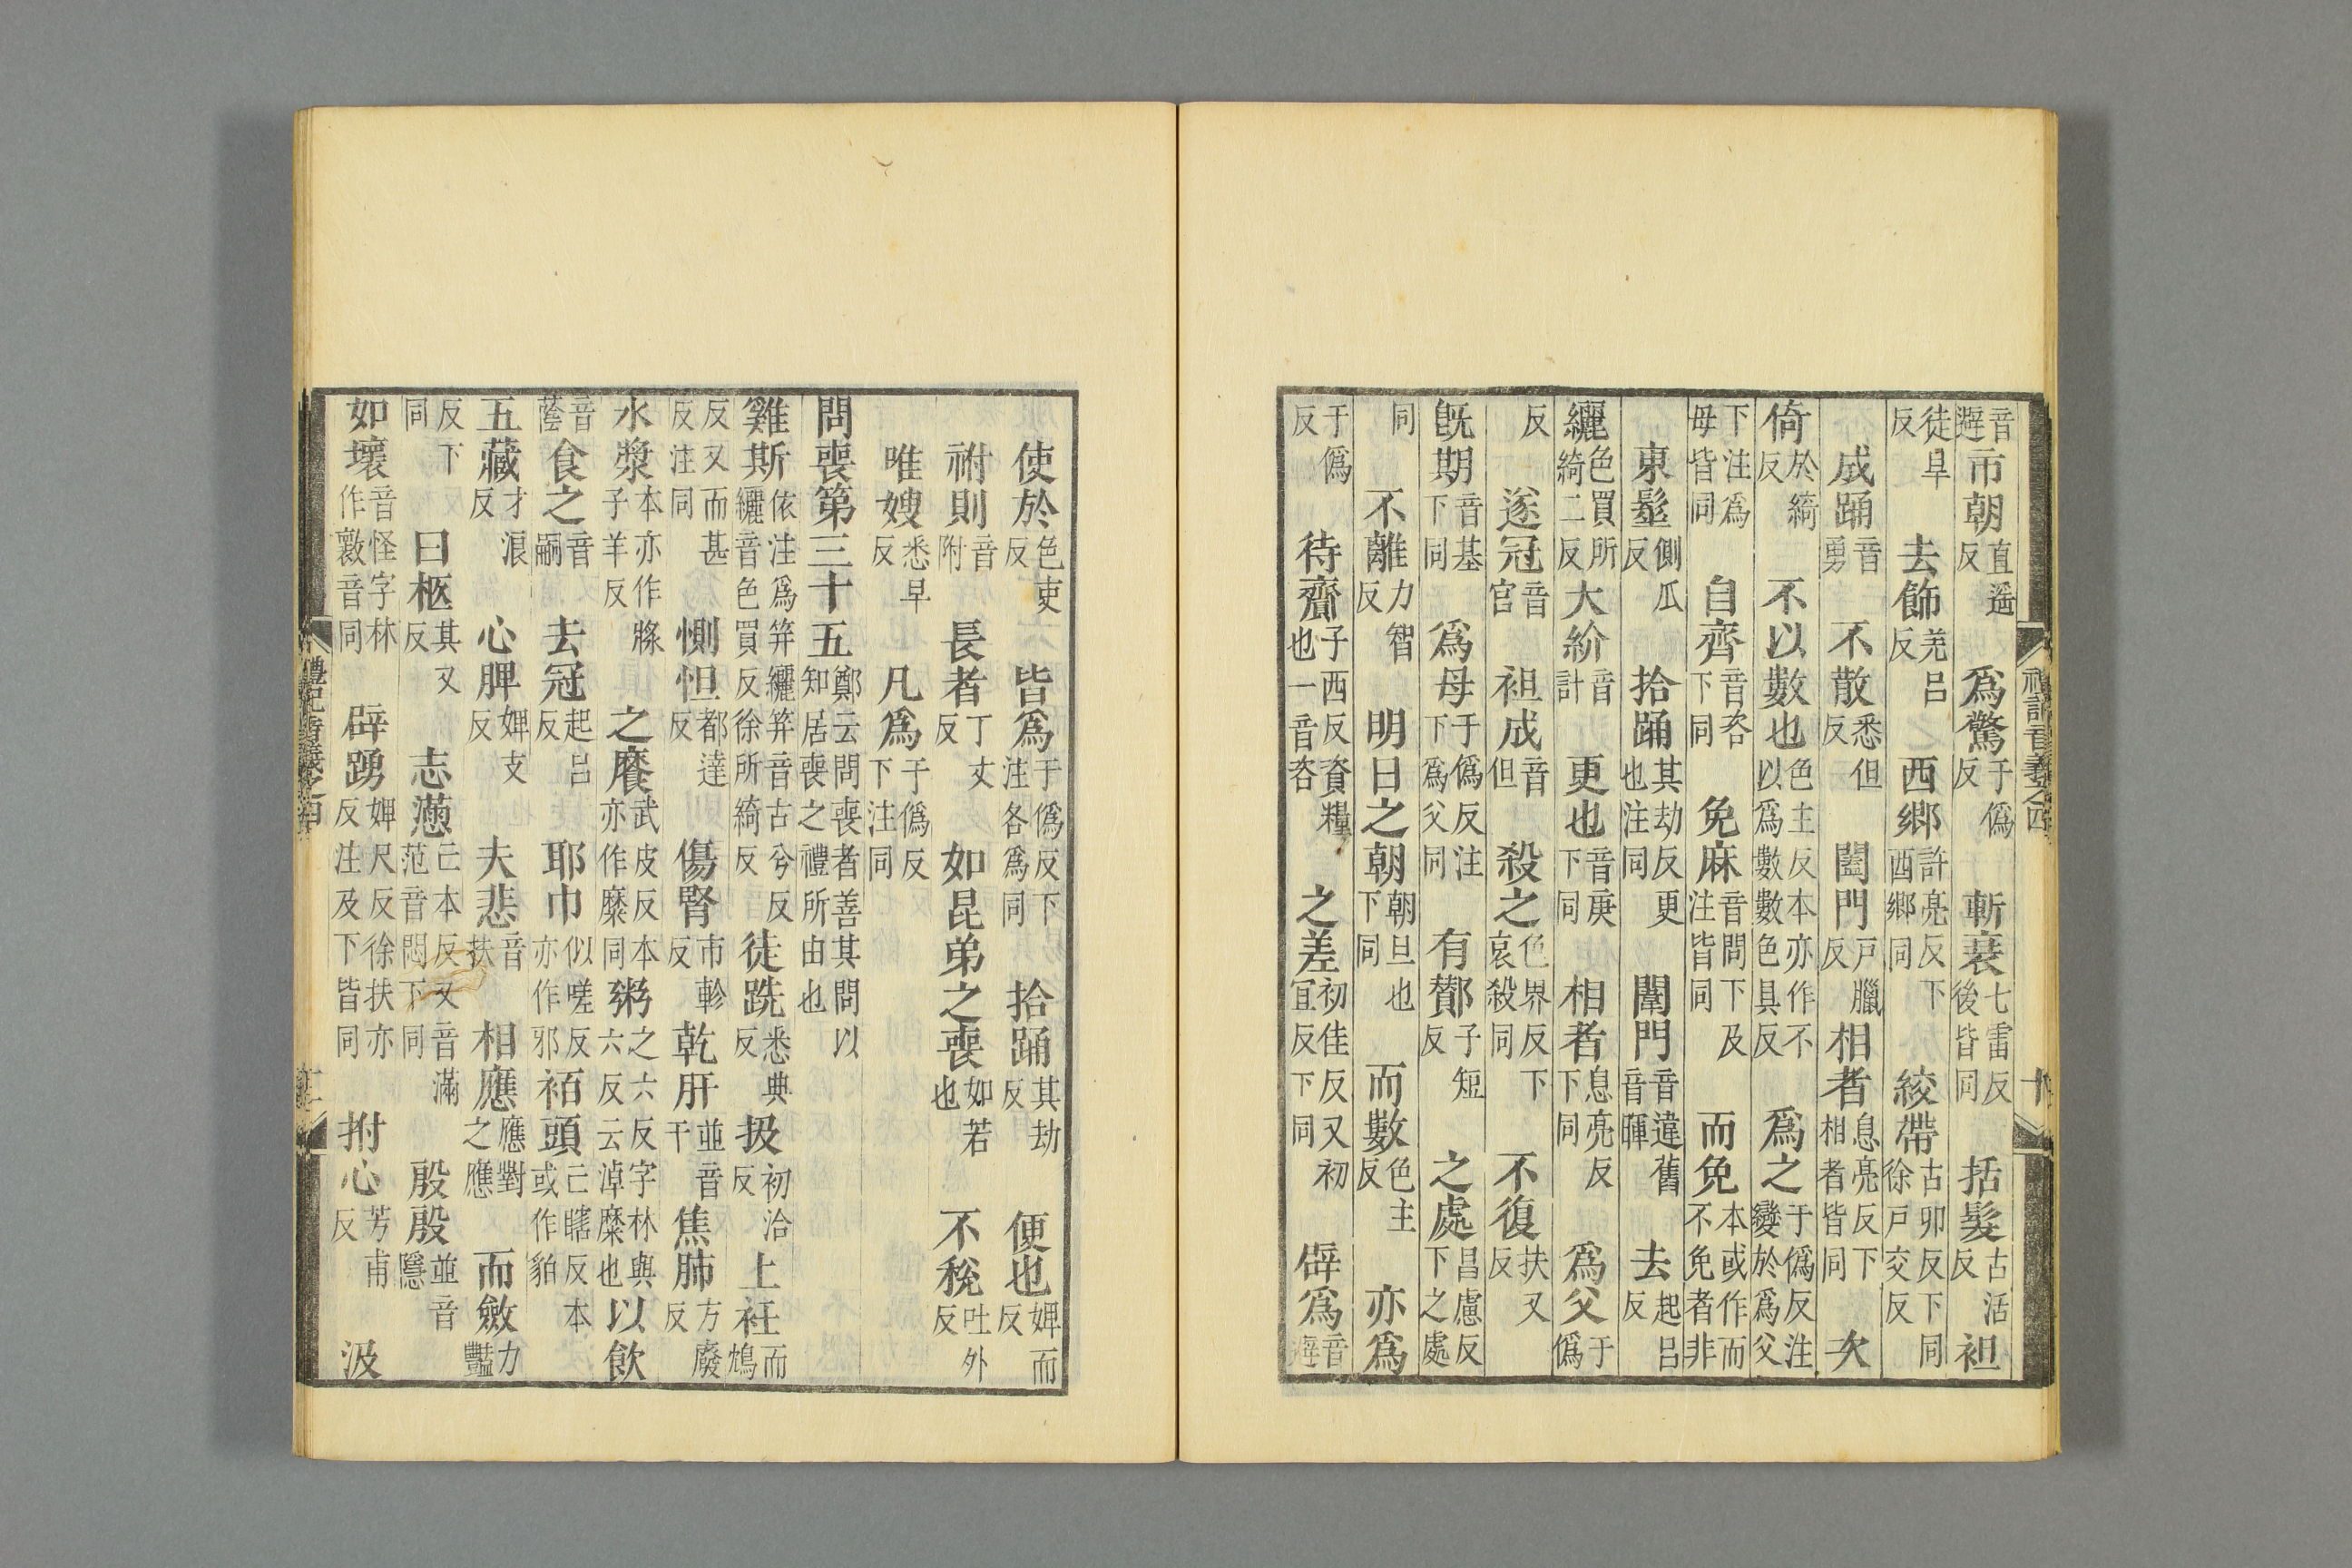 音避市朝直遥反爲驚于僞反斬衰七雷反後皆同括髮古活反袒
徒旱反去飾羌呂反西鄉許亮反下西鄉同絞帶古卯反下同徐戸交反
成踊音勇不散悉但反闔門戸臘反相者息亮反下相者皆同次
倚於綺反不以數也色主反本亦作不以爲數數色具反爲之于僞反注變於爲父
下注爲母皆同自齊音咨下同免麻音問下及注皆同而免本或作而不免者非
東髽側瓜反拾踊其劫反更也注同闈門音違舊音暉去起呂反
纚色買所綺二反大紒音計更也音庚下同相者息亮反下同爲父于僞
反遂冠音官袒成音但殺之色界反下哀殺同不復扶又反
旣期音基下同爲母于僞反注下爲父同有酇子短反之處昌慮反下之處
同不離力智反明日之朝朝旦也下同而數色主反亦爲
于僞反待齎子西反資糧也一音咨之差初佳反又初宜反下同辟爲音避
禮記音義之四
十
使於色吏反皆爲于僞反下注各爲同拾踊其劫反便也婢而反
祔則音附長者丁丈反如昆弟之喪如若也不稅吐外反
唯嫂悉早反凡爲于僞反下注同
問喪第三十五鄭云問喪者善其問以知居喪之禮所由也
雞斯依注爲笄纚笄音古兮反纚音色買反徐所綺反徒跣悉典反扱初洽反上衽而鴆
反又而甚反注同惻怛都達反傷腎市軫反乾肝並音干焦肺方廢反
水漿本亦作牂子羊反之糜武皮反本亦作麋同粥之六反字林與六反云淖糜也以飮
音蔭食之音嗣去冠起呂反耶巾似嗟反亦作邪袹頭亡瞎反本或作貃
五藏才浪反心脾婢支反夫悲音扶相應應對之應而斂力豔
反下同曰柩其又反志懣亡本反又音滿范音悶下同殷殷並音隱
如壞音怪字林作㱮音同辟踴婢尺反徐扶亦反注及下皆同拊心芳甫反汲
禮記音義之四
十一